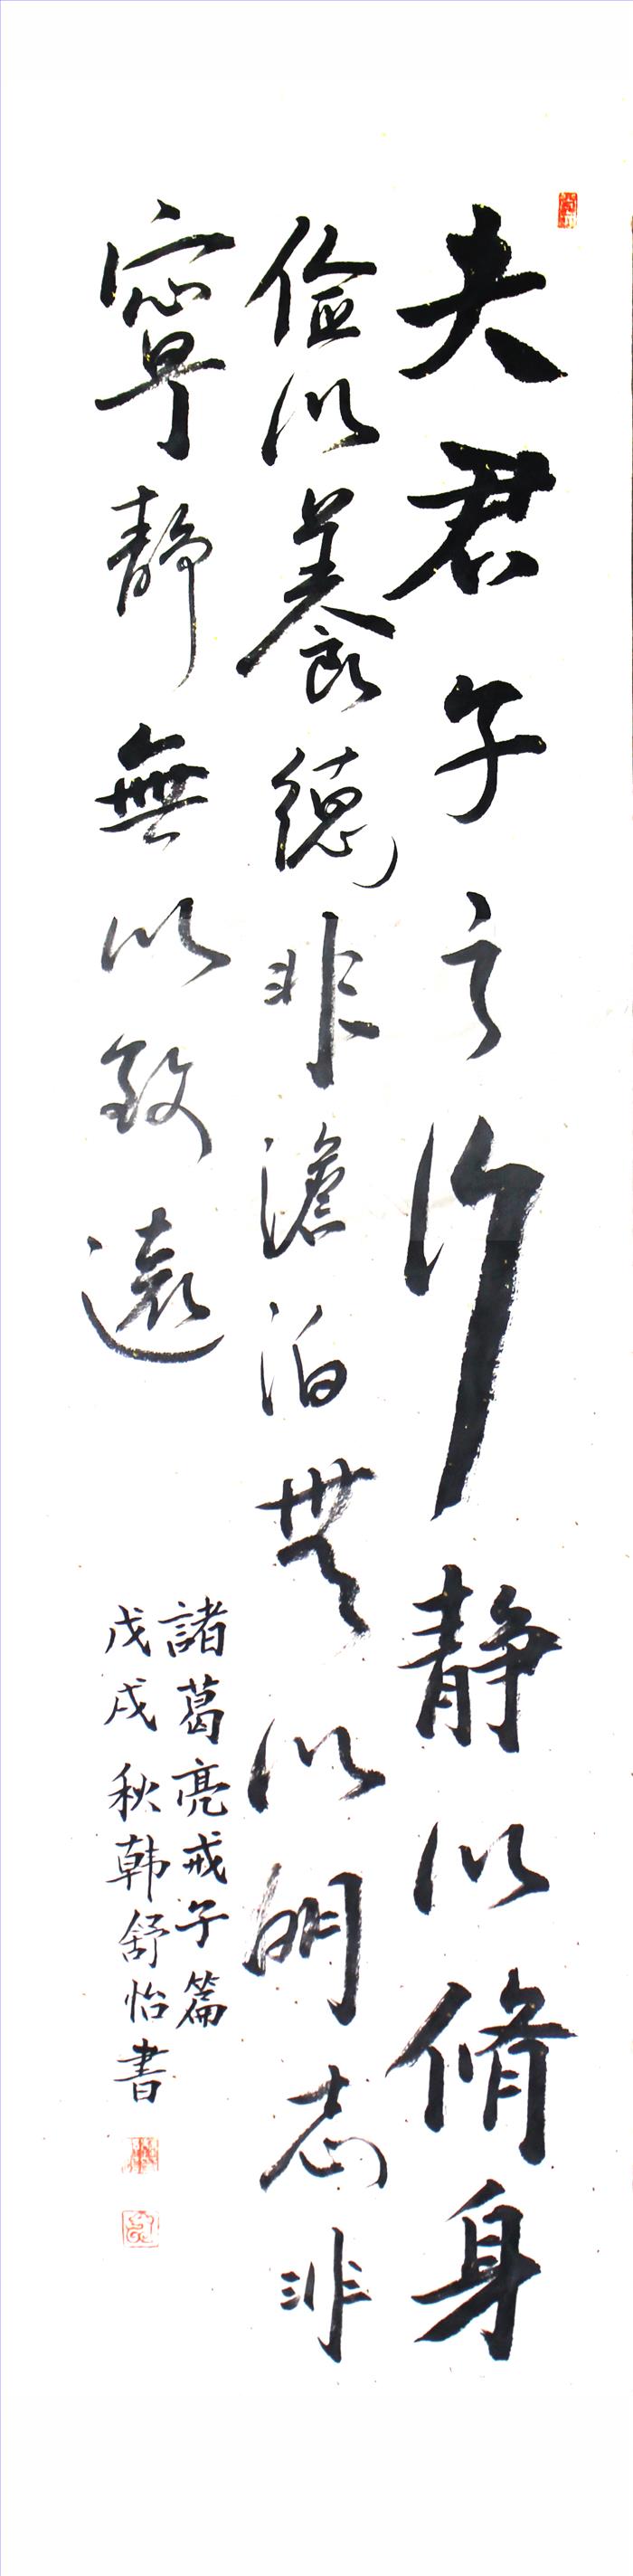 夫君子之行静以脩身
俭以養德非澹泊無以明志非
寧静無以致遠
諸葛亮戒子篇
戊戌秋韩舒怡書